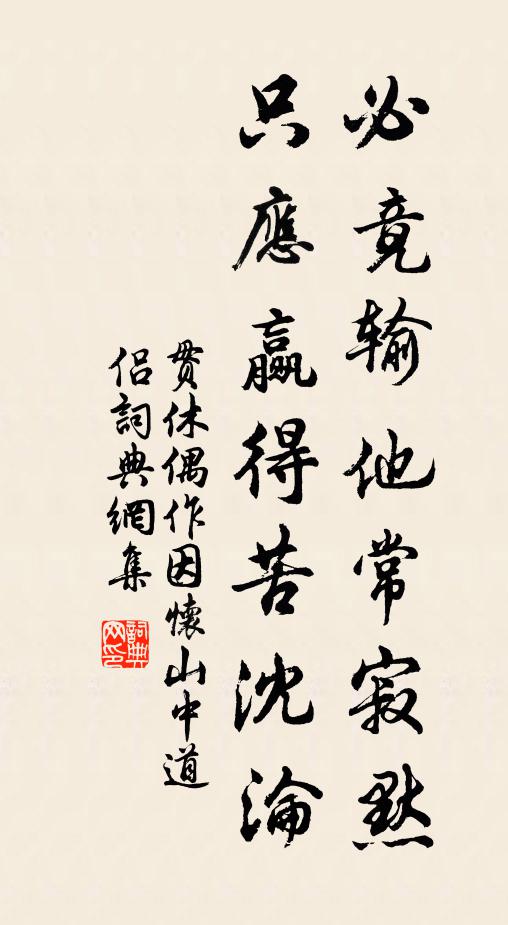 必竟输他常寂默
只應贏得苦沈淪
贯休偶作因懷山中道
侣詞典網集
詞典
网印